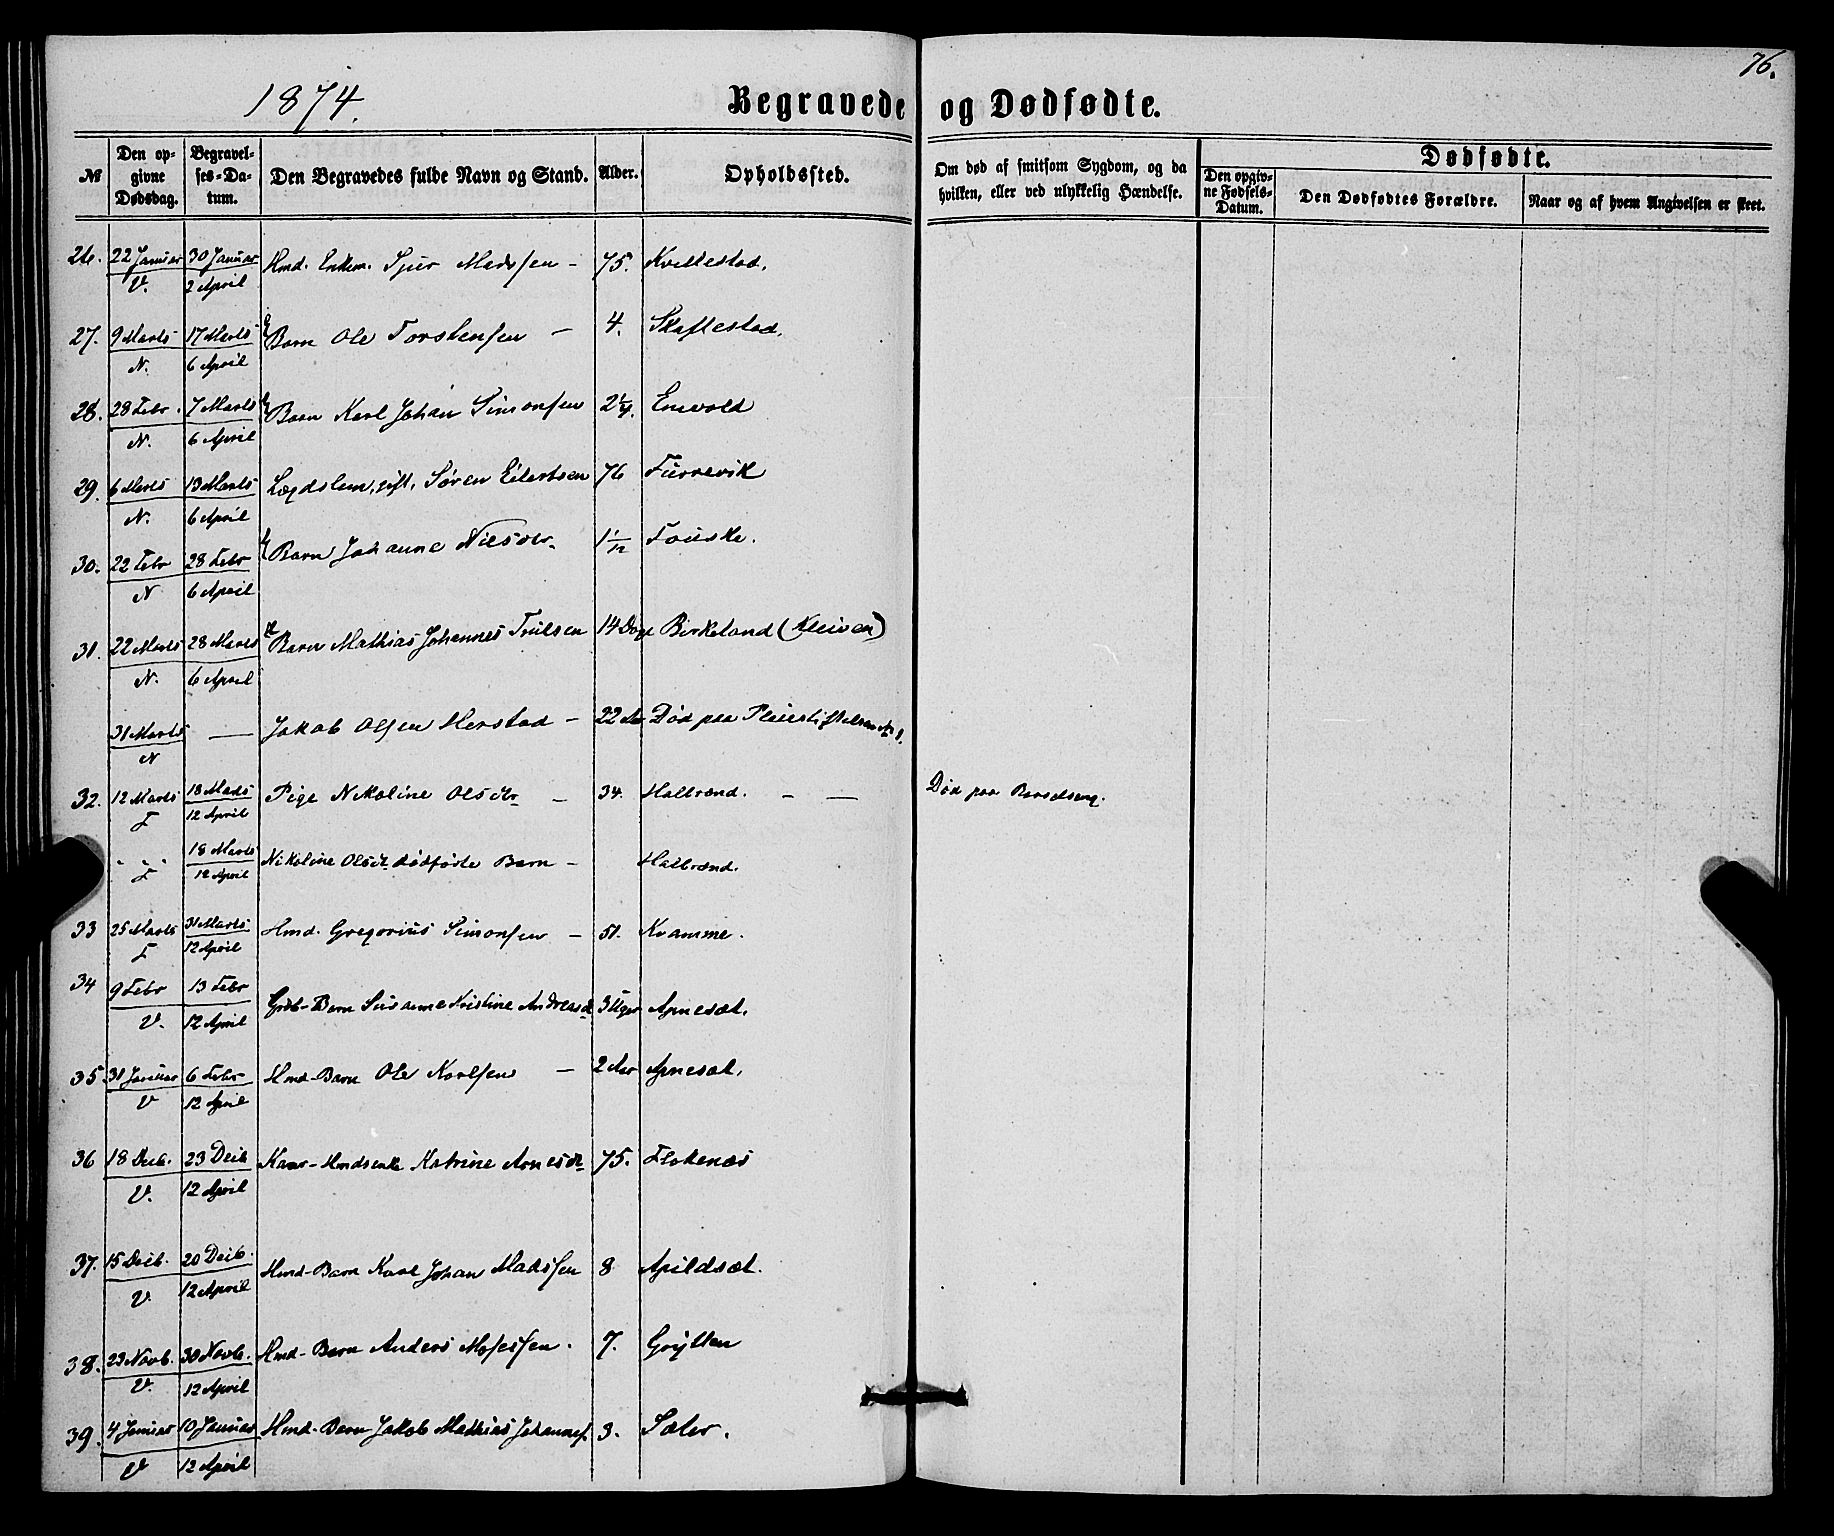 76.
1874.
Begravede og Dødfødte.
№ Den opgivne Dødsdag. Begravelses-Datum. Den Begravedes fulde Navn og Stand. Alder. Opholdssted. Om død af smitsom Sygdom, og da hvilken, eller ved ulykkelig Hændelse. Dødfødte. Den opgivne Fødsels-Datum. Den Dødfødtes Forældre. Naar og af hvem Angivelsen er skeet.
26. 22 Januar V. 30 Januar 2 April Hmd. Enkem. Sjur Madssen – 75. Kvellestad.
27. 9 Marts N. 17 Marts 6 April Barn Ole Torstensen – 4. Skaflestad.
28. 28 Febr. N. 7 Marts 6 April Barn Karl Johan Simonsen 2 1/4. Emvold
29. 6 Marts N. 13 Marts 6 April Lægdslem, gift, Søren Eilertsen 76 Furrevik
30. 22 Febr N 28 Febr 6 April Barn Johanne Nilsdtr. 1 1/12 Fouske.
31. 22 Marts N. 28 Marts 6 April Barn Mathias Johannes Trulsen 14 Dage Birkeland (Kleiven)
31 Marts N — Jakob Olsen Herstad – 22 Aar Død paa Pleiestiftelsen № 1.
32. 12 Marts F 18 Marts 12 April Pige Nikoline Olsdtr – 34. Halbrænd. – — Død paa Barselseng.
" " " F 18 Marts 12 April Nikoline Olsdtr dødfødte Barn – Halbrænd.
33 25 Marts F 31 Marts 12 April Hmd. Gregorius Simonsen – 51. Kramme.
34 9 Febr V. 13 Febr 12 April Grdb-Barn Susanne Kristine Andreasdtr 3 Uger Apnesæt.
35 31 Januar V 6 Febr 12 April Hmd-Barn Ole Karlsen – 2 Aar Apnesæt.
36 18 Decb. V. 23 Decb 12 April Kaar-Hmdsenke Katrine Arnesdtr 75. Flokenæs
37. 15 Decb. V. 20 Decb. 12 April Hmd-Barn Karl Johan Madssen 8 Apildsæt.
38. 23 Novb. V. 30 Novb. 12 April Hmd-Barn Anders Mosessen. 7. Grytten
39. 4 Januar V 10 Januar 12 April Hmd-Barn Jakob Mathias Johannes. 3. Sæter.